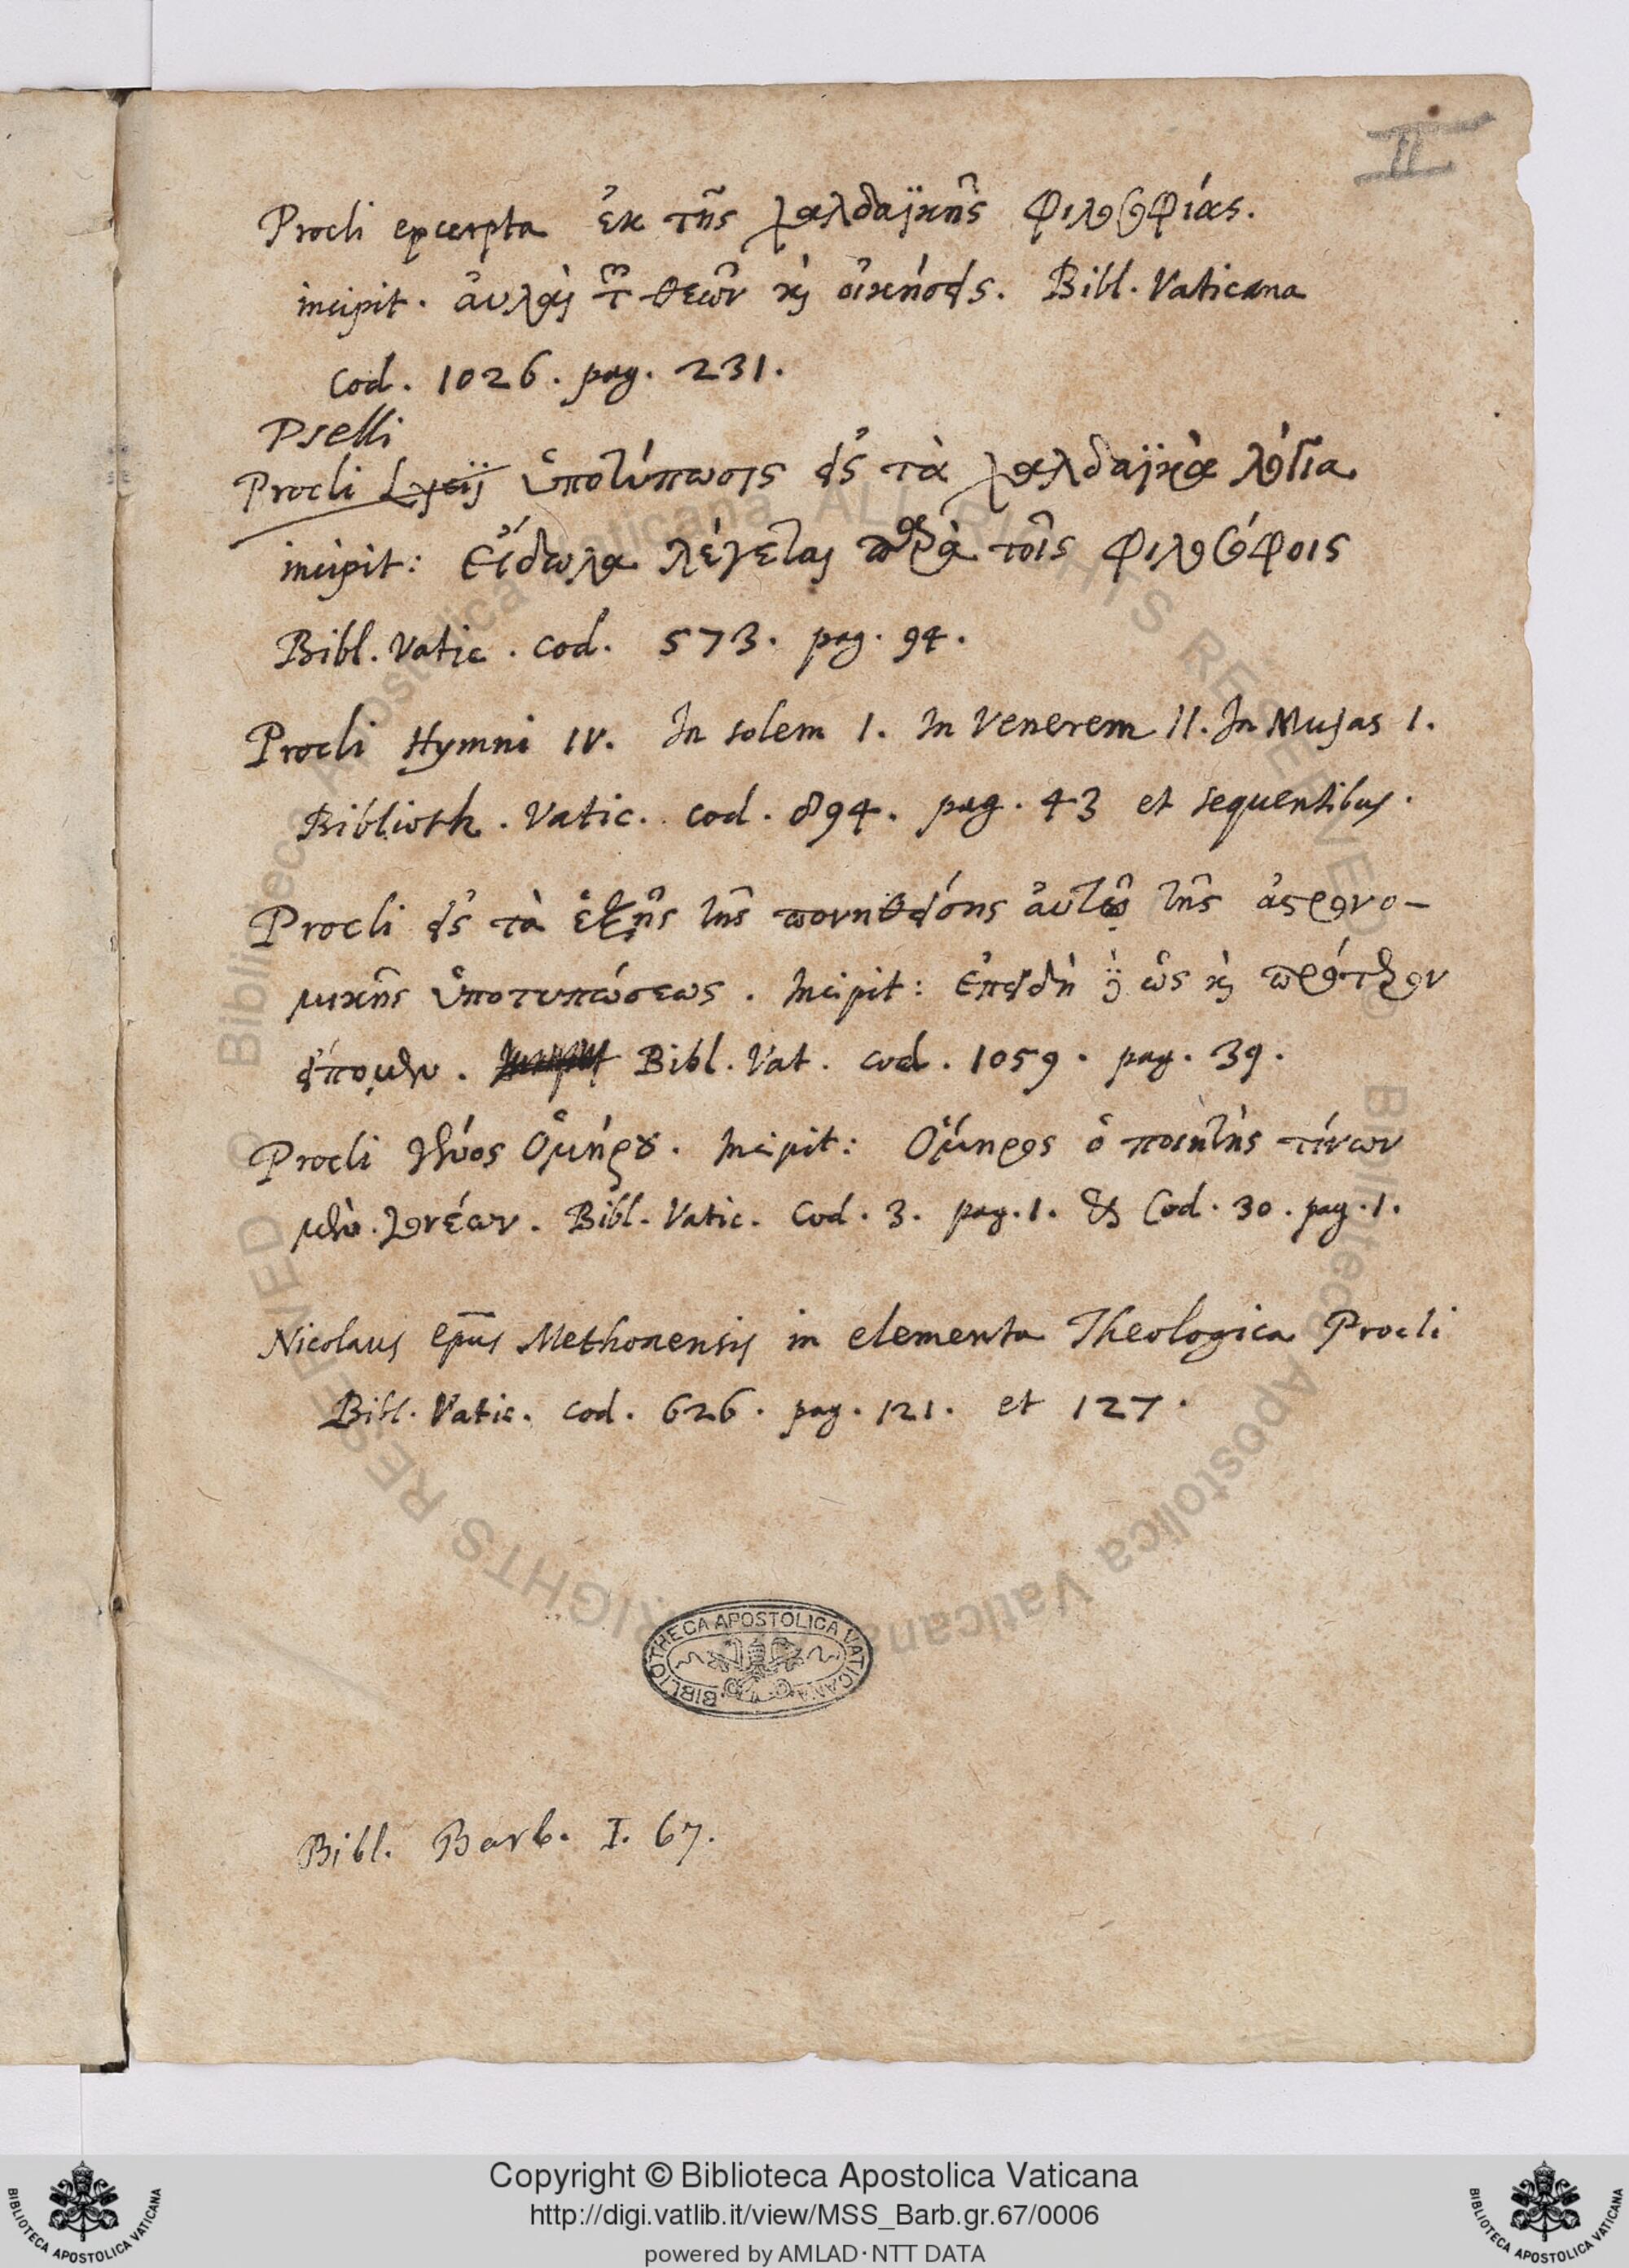 II
Procli excerpta ἐκ τῆς χαλδαϊκῆς φιλοσοφίας.
incipit. ἀυλαὶ τῶν θεῶν καὶ οἰκήσεις. Bibl. Vaticana
Cod. 1026. pag. 231.
Pselli
Procli Lycij ὑποτύπωσις εἰς τὰ χαλδαϊκὰ λόγια
incipit: Εἴδωλα λέγεται παρὰ τοῖς φιλοσόφοις
Bibl. Vatic. cod. 573. pag. 94.
Procli Hymni IV. In solem I. In Venerem II. In Musas I.
Biblioth. Vatic. cod. 894. pag. 43 et sequentibus.
Procli εἰς τὰ ἑξῆς τῆς πονηθείσης ἀυτῷ τῆς ἀστρονο-
μικῆς ὑποτυπώσεως. Incipit: ἐπειδὴ ὡς καὶ πρότερον
εἴπομεν. Bibl. Vat. cod. 1059. pag. 39.
Procli γένος Ὁμήρου. Incipit: Ὅμηρος ὁ ποιητὴς τίνων
μὲν γονέων. Bibl. Vatic. Cod. 3. pag. 1. & Cod. 30. pag. 1.
Nicolaus epus Methonensis in elementa Theologica Procli
Bibl. Vatic. cod. 626. pag. 121. et 127.
BIBLIOTHECA APOSTOLICA VATICANA
Bibl. Barb. I. 67.
Copyright © Biblioteca Apostolica Vaticana
http://digi.vatlib.it/view/MSS_Barb.gr.67/0006
powered by AMLAD·NTT DATA
BIBLIOTECA APOSTOLICA VATICANA
BIBLIOTECA APOSTOLICA VATICANA